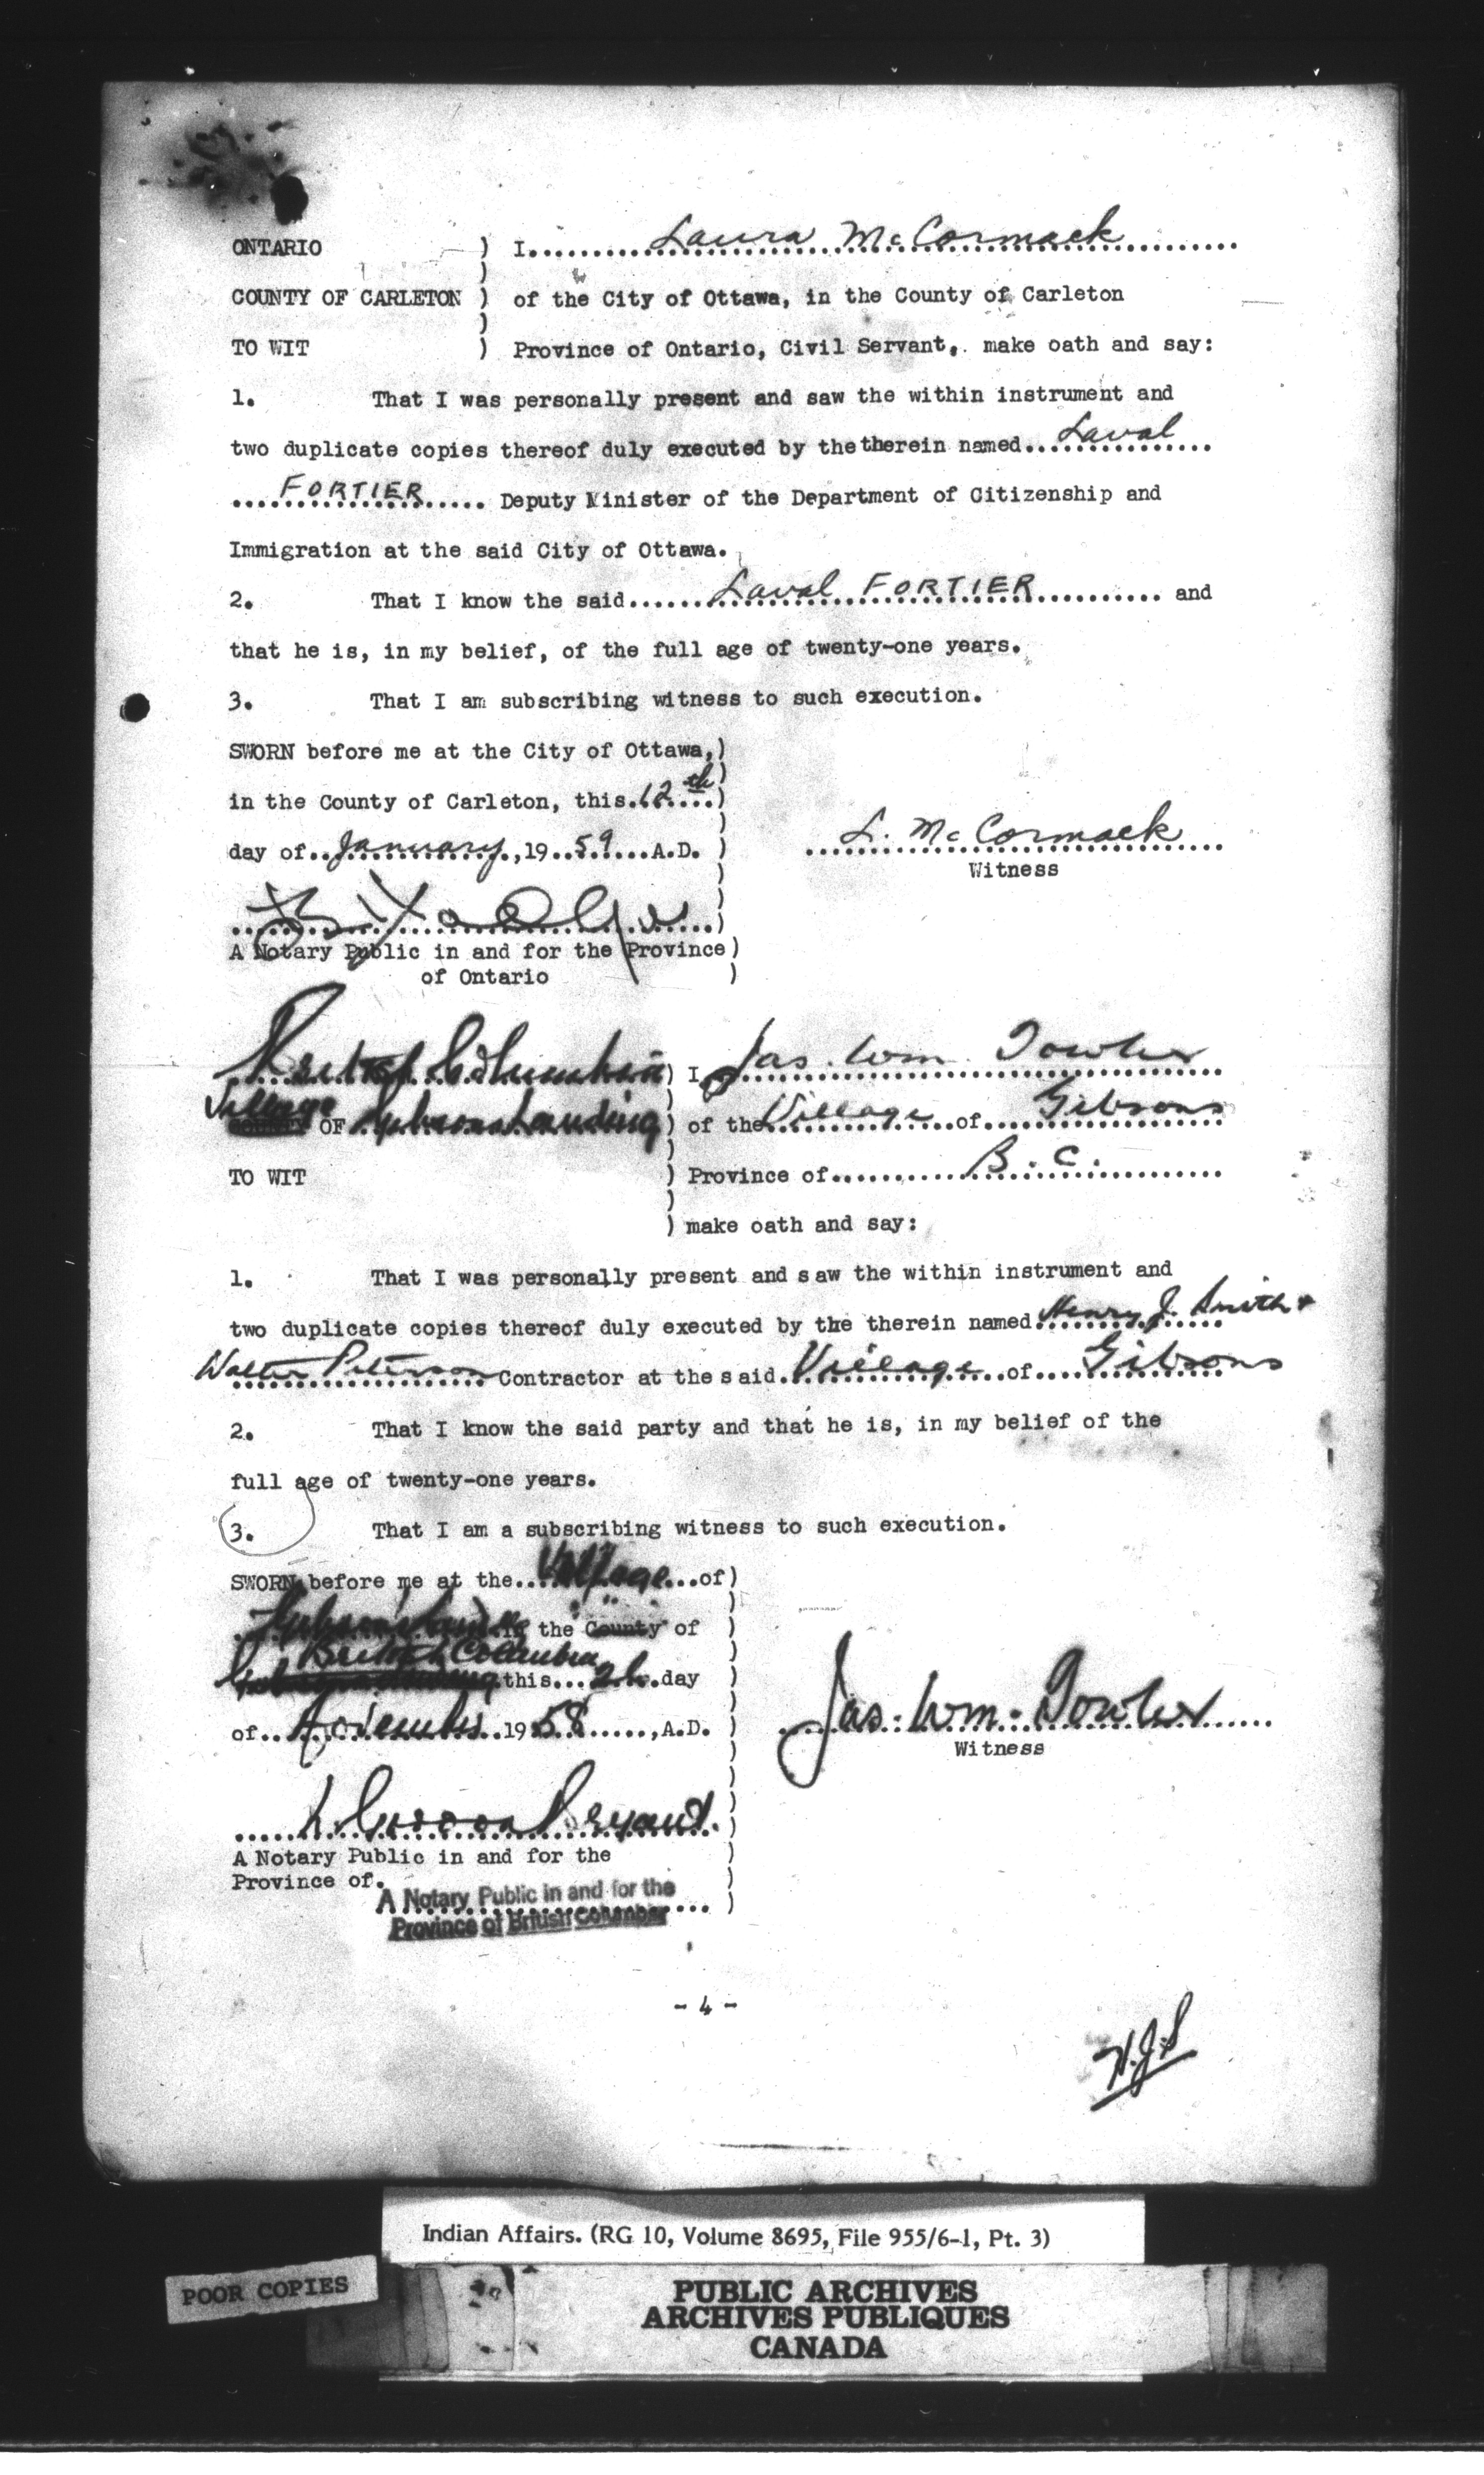 ONTARIO ) I..........Laura McCormack..........
COUNTY OF CARLETON ) of the City of Ottawa, in the County of Carleton
TO WIT ) Province of Ontario, Civil Servant, make oath and say:
1. That I was personally present and saw the within instrument and
two duplicate copies thereof duly executed by the therein named...Laval...
....FORTIER..... Deputy Minister of the Department of Citizenship and
Immigration at the said City of Ottawa.
2. That I know the said......Laval FORTIER.......... and
that he is, in my belief, of the full age of twenty-one years.
3. That I am subscribing witness to such execution.
SWORN before me at the City of Ottawa,)
in the County of Carleton, this.12th..)
day of..January..,19..59...A.D. )
L. McCormack
Witness
A Notary Public in and for the Province)
of Ontario )
British Columbia ) I Jas. Wm. Towler
Village COUNTY OF Gibsons Landing ) of the Village of Gibsons
TO WIT ) Province of......B.C.......
) make oath and say:
1. That I was personally present and saw the within instrument and
two duplicate copies thereof duly executed by the therein named Henry J. Smith &
Walter Peterson Contractor at the said Village of Gibsons
2. That I know the said party and that he is, in my belief of the
full age of twenty-one years.
3. That I am a subscribing witness to such execution.
SWORN before me at the..Village...of)
Gibsons Landing in the County of )
British Columbia
this...26..day )
of..November..1958.....,A.D. )
Jas. Wm. Towler
Witness
Bryant.
A Notary Public in and for the )
Province of.
A Notary Public in and for the
Province of British Columbia
- 4 -
H.J.S
Indian Affairs. (RG 10, Volume 8695, File 955/6-1, Pt. 3)
POOR COPIES
PUBLIC ARCHIVES
ARCHIVES PUBLIQUES
CANADA